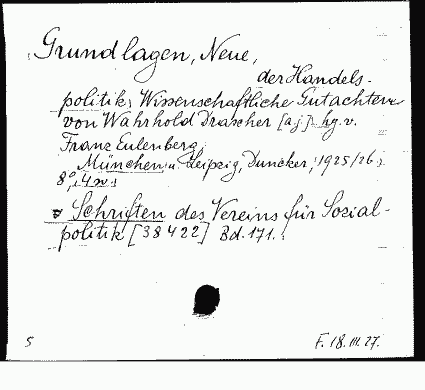 Grundlagen, Neue,
der Handels-
politik; Wissenschaftliche Gutachten
von Wahrhold Drascher [a.j.] hg. v.
Franz Eulenberg.
München u. Leipzig, Duncker, 1925/26.
8°, 4 n.
Schriften des Vereins für Sozial-
politik [38422] Bd. 171.
5 F. 18. III. 27.